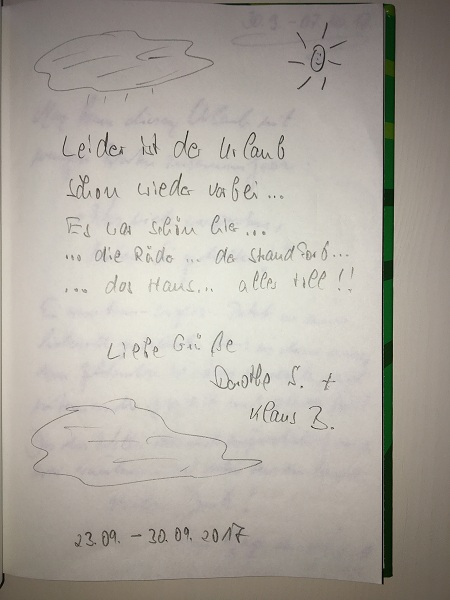 Leider ist der Urlaub
schon wieder vorbei...
Es war schön hier...
... die Räder ... der Strandkorb...
... das Haus... alles toll!!
Liebe Grüße
Dorothe S. +
Klaus B.
23.09. - 30.09.2017